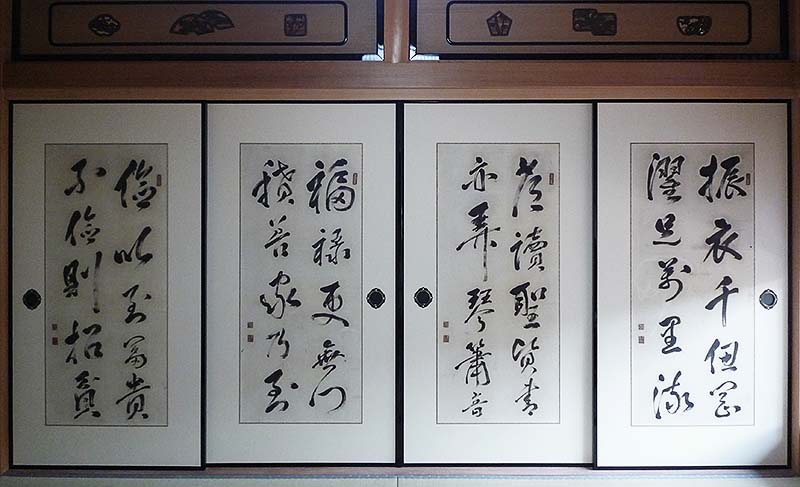 振衣千仞岡
濯足萬里流
讀聖賢書
亦弄琴簫音
福禄更無門
積善家乃到
儉以到富貴
不儉則招貧